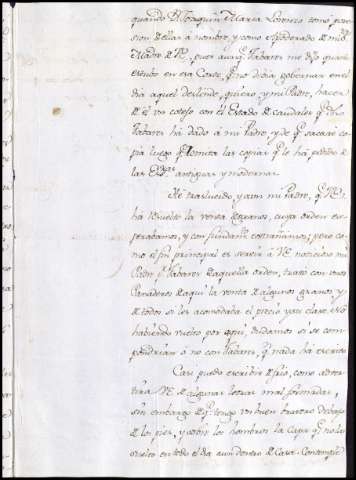 quando Dⁿ Joaquin Maria Lorenzo tomó pose-
sion de ellas á nombre, y como Apoderado de mi Sᵃ
Madre de V.E., pues aunq. Tabares me dijo quando
estubo en esa Corte, q. no debia gobernar en el
dia aquel deslinde, quiero yo y mi Padre, hacer
de el un cotejo con el Estado de caudales q. dho
Tabares há dado á mi Padre, y de q. sacaré co-
pia luego q. remita las copias q. le há pedido de
las Esᵃˢ antiguas y modernas.
Hé traslucido, y aun mi Padre, q. V.E.
há resuelto la venta de granos, cuya orden es-
perabamos, y con fundamᵗᵒ extrañamos; pero co-
mo el fin principal es servir á V.E. noticioso mi
Padre p. Tabares de aquella orden, trató con unos
Panaderos de aqui la venta de algunos granos y
de todos si les acomodaba el precio y su clase. No
habiendo vuelto por aqui, dudamos si se com-
pondrian ó no con Tabares, q. nada há escrito.
Casi puedo escribir de frio, como adver-
tirá V.E. de algunas letras mal formadas,
sin embargo de q. tengo un buen brasero debajo
de los pies, y sobre los hombros la capa q. no la
suelto en todo el dia aun dentro de Casa. Contemple